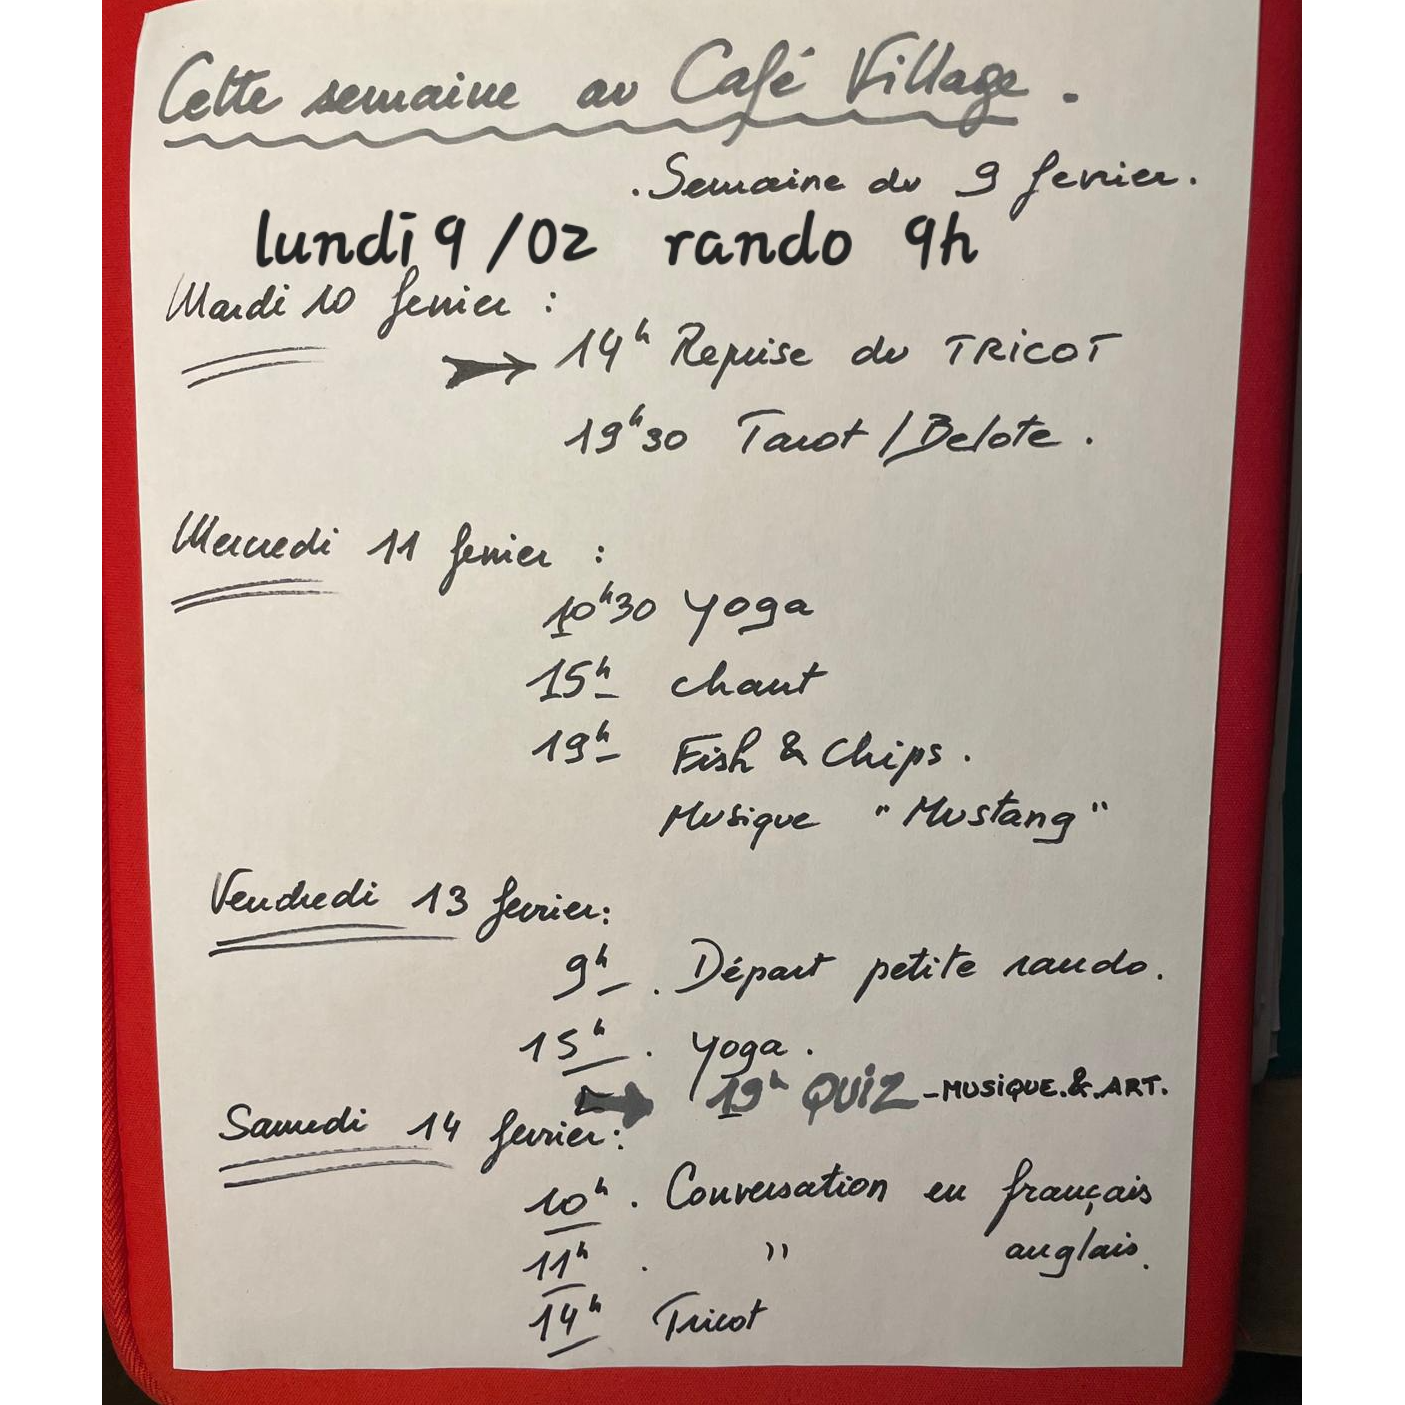 Cette semaine au Café Village.
. Semaine du 9 fevrier.
lundi 9/02 rando 9h
Mardi 10 fevrier :
14h Reprise du TRICOT
19h30 Tarot / Belote.
Mercredi 11 fevrier :
10h30 Yoga
15h chant
19h Fish & Chips.
Musique "Mustang"
Vendredi 13 fevrier:
9h . Départ petite rando.
15h . Yoga.
19h QUIZ - MUSIQUE.&.ART.
Samedi 14 fevrier:
10h . Conversation en français
11h . " anglais.
14h Tricot